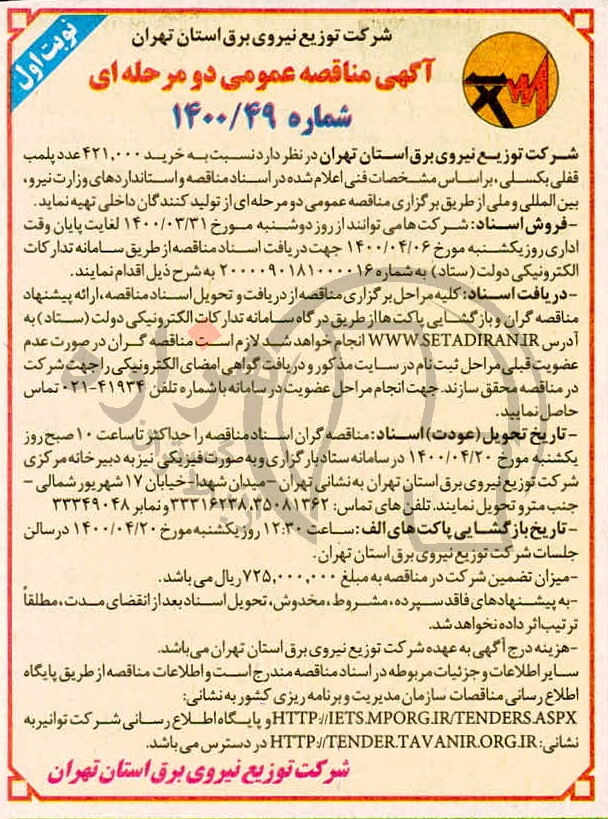 نوبت اول
شرکت توزیع نیروی برق استان تهران
آگهی مناقصه عمومی دو مرحله ای
شماره ۱۴۰۰/۴۹
شرکت توزیع نیروی برق استان تهران در نظر دارد نسبت به خرید ۴۲۱,۰۰۰ عدد پلمب
قفلی بکسلی، بر اساس مشخصات فنی اعلام شده در اسناد مناقصه و استانداردهای وزارت نیرو،
بین المللی و ملی از طریق برگزاری مناقصه عمومی دو مرحله ای از تولید کنندگان داخلی تهیه نماید.
-فروش اسناد: شرکت ها می توانند از روز دوشنبه مورخ ۱۴۰۰/۰۳/۳۱ لغایت پایان وقت
اداری روز یکشنبه مورخ ۱۴۰۰/۰۴/۰۶ جهت دریافت اسناد مناقصه از طریق سامانه تدارکات
الکترونیکی دولت (ستاد) به شماره ۲۰۰۰۰۹۰۱۸۱۰۰۰۰۱۶ به شرح ذیل اقدام نمایند.
-دریافت اسناد: کلیه مراحل برگزاری مناقصه از دریافت و تحویل اسناد مناقصه، ارائه پیشنهاد
مناقصه گران و بازگشایی پاکت ها از طریق درگاه سامانه تدارکات الکترونیکی دولت (ستاد) به
آدرس WWW.SETADIRAN.IR انجام خواهد شد. لازم است مناقصه گران در صورت عدم
عضویت قبلی مراحل ثبت نام در سایت مذکور و دریافت گواهی امضای الکترونیکی را جهت شرکت
در مناقصه محقق سازند. جهت انجام مراحل عضویت در سامانه با شماره تلفن ۴۱۹۳۴-۰۲۱ تماس
حاصل نمایید.
-تاریخ تحویل (عودت) اسناد: مناقصه گران اسناد مناقصه را حداکثر تا ساعت ۱۰ صبح روز
یکشنبه مورخ ۱۴۰۰/۰۴/۲۰ در سامانه ستاد بارگزاری و به صورت فیزیکی نیز به دبیرخانه مرکزی
شرکت توزیع نیروی برق استان تهران به نشانی تهران - میدان شهدا-خیابان ۱۷ شهریور شمالی -
جنب مترو تحویل نمایند. تلفن های تماس: ۳۳۳۱۶۲۳۸،۳۵۰۸۱۳۶۲ و نمابر ۳۳۳۴۹۰۴۸
-تاریخ بازگشایی پاکت های الف: ساعت ۱۲:۳۰ روز یکشنبه مورخ ۱۴۰۰/۰۴/۲۰ در سالن
جلسات شرکت توزیع نیروی برق استان تهران.
-میزان تضمین شرکت در مناقصه به مبلغ ۷۲۵,۰۰۰,۰۰۰ ریال می باشد.
-به پیشنهادهای فاقد سپرده، مشروط، مخدوش، تحویل اسناد بعد از انقضای مدت، مطلقاً
ترتیب اثر داده نخواهد شد.
-هزینه درج آگهی به عهده شرکت توزیع نیروی برق استان تهران می باشد.
سایر اطلاعات و جزئیات مربوطه در اسناد مناقصه مندرج است و اطلاعات مناقصه از طریق پایگاه
اطلاع رسانی مناقصات سازمان مدیریت و برنامه ریزی کشور به نشانی:
HTTP://IETS.MPORG.IR/TENDERS.ASPX و پایگاه اطلاع رسانی شرکت توانیر به
نشانی: HTTP://TENDER.TAVANIR.ORG.IR در دسترس می باشد.
شرکت توزیع نیروی برق استان تهران